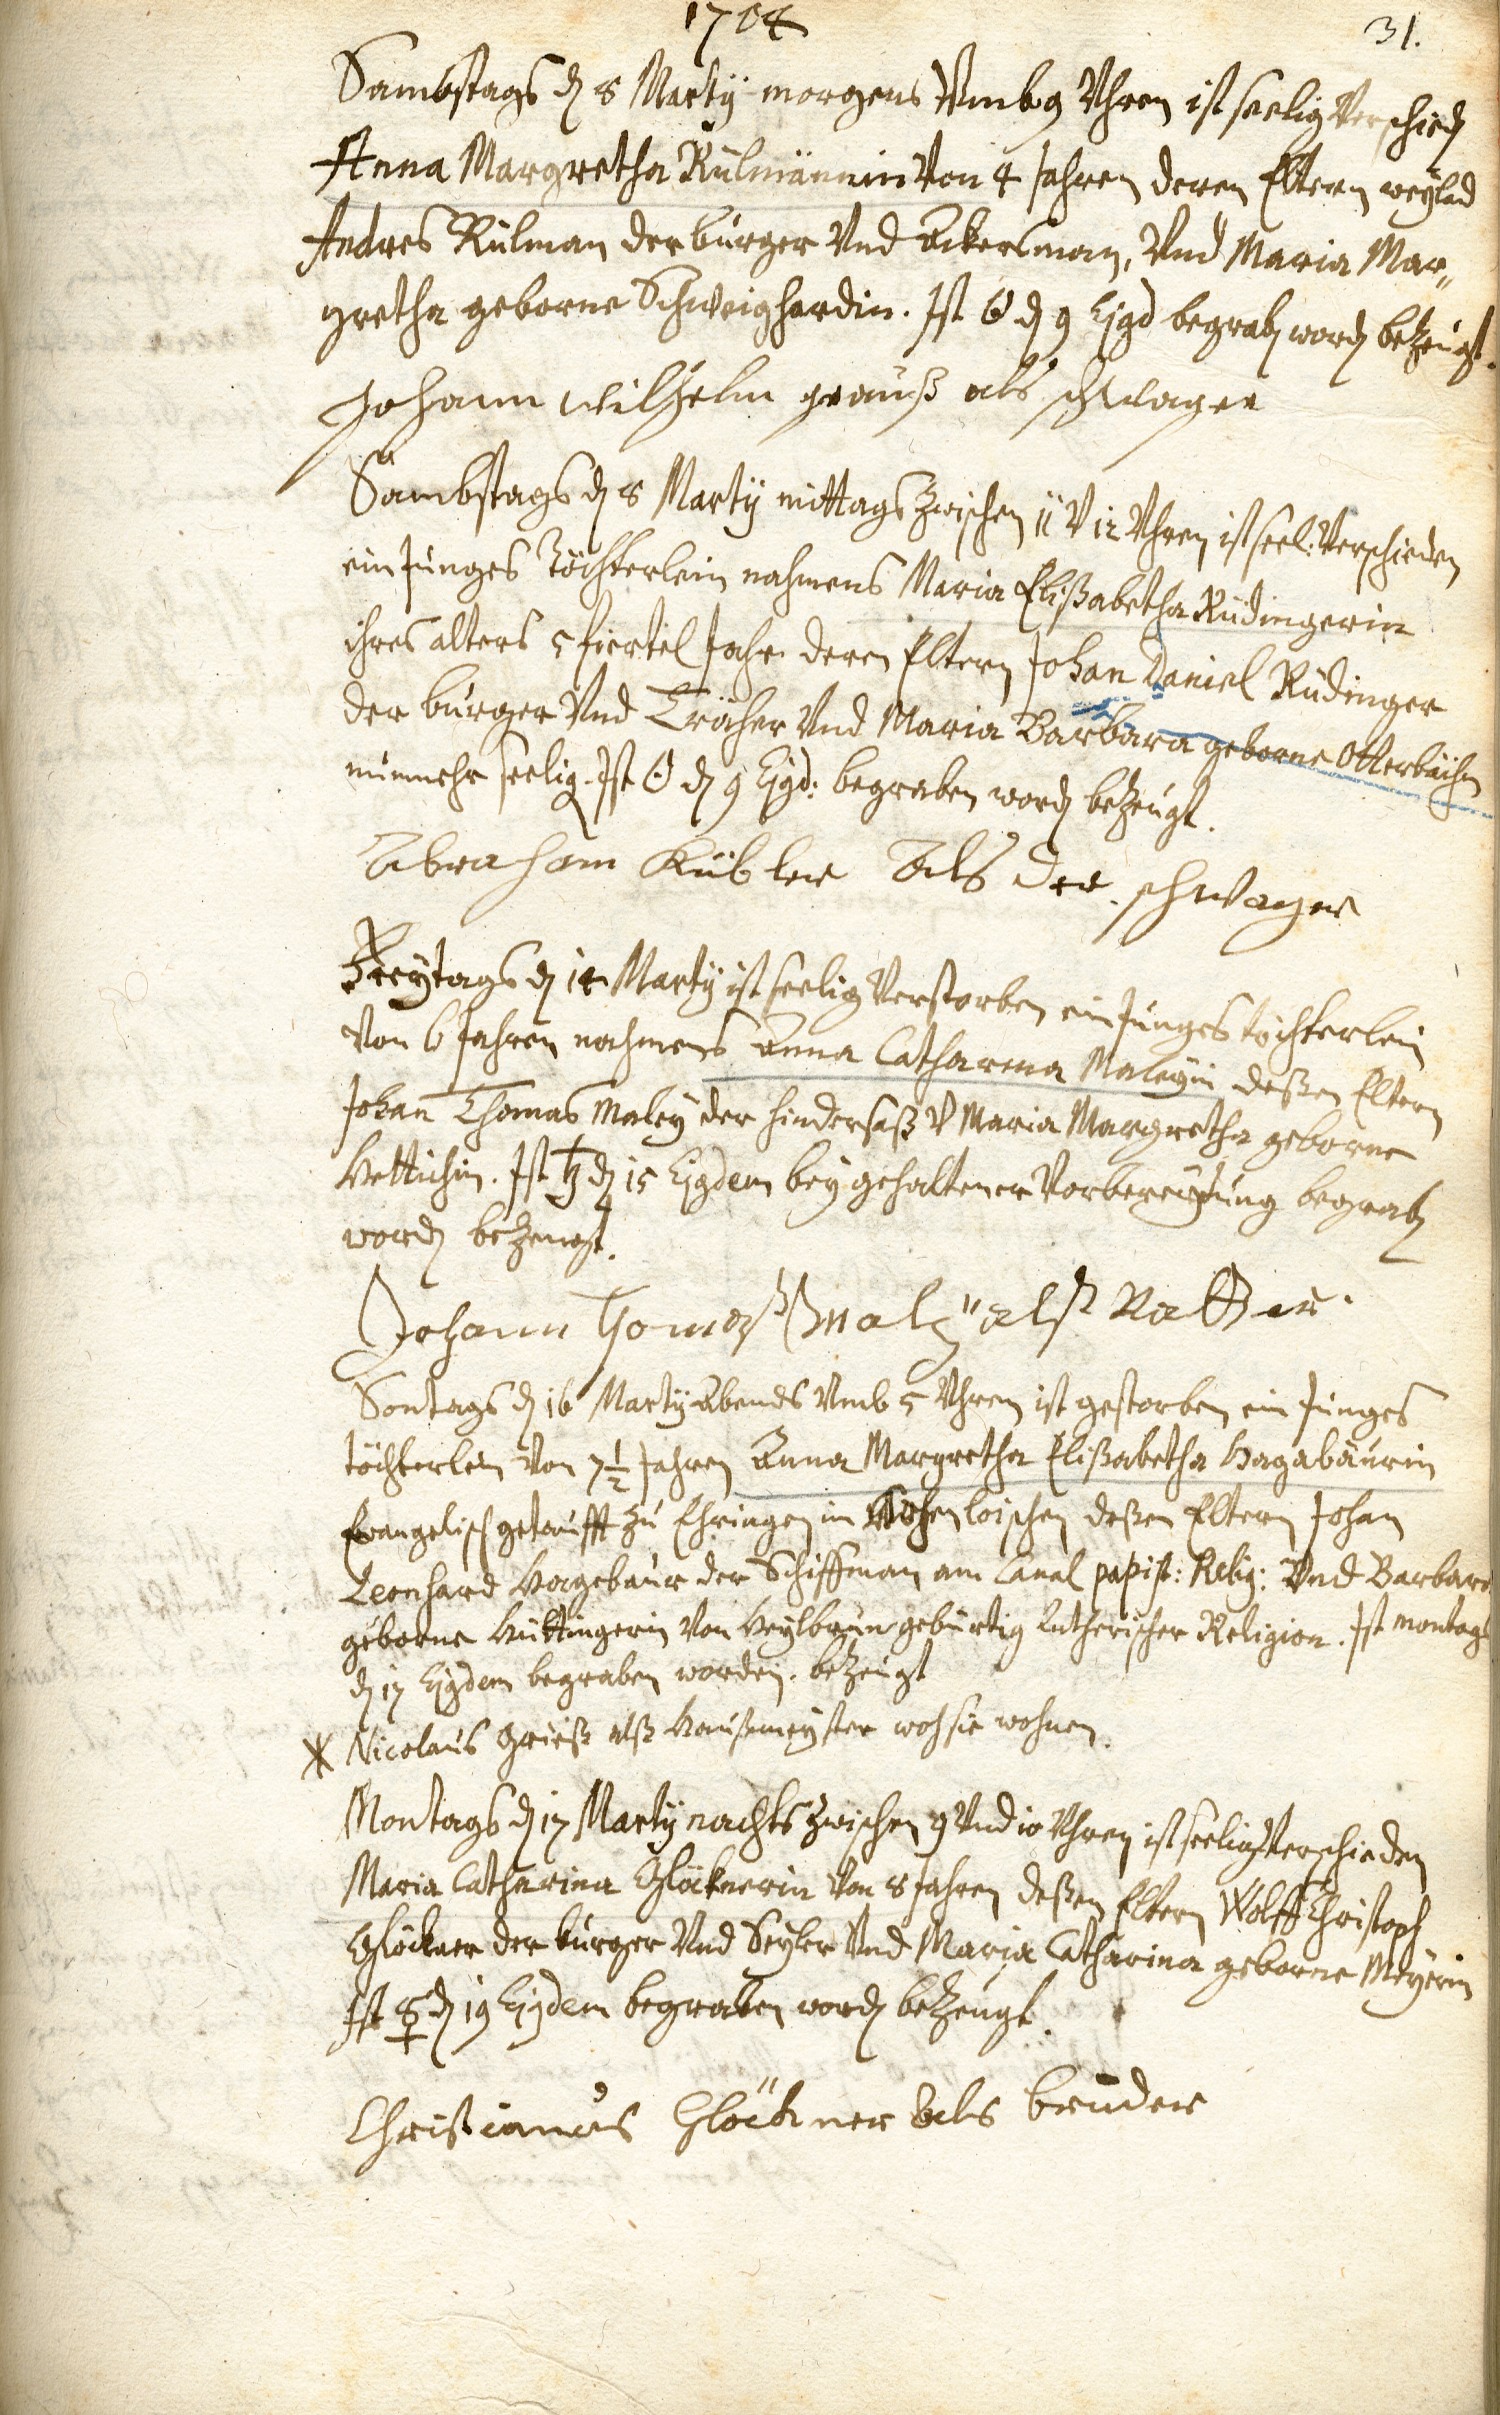 1704
31.
Sambstags d 8 Martÿ morgens Vmb 9 Vhren ist seelig Verschied
Anna Margretha Rülmännin Von 4 Jahren deren Eltern weÿlad
Andres Rülman der burger Vnd Ackersman, Vnd Maria Mar„
gretha geborne Schweighardin. Ist ☉ d 9 Ejgd begrab word bezeugt.
Johann Wilhelm grauß als schwager
Sambstags d 8 Martÿ mittags zwischen 11 V 12 Vhren ist seel: Verschieden
ein Junges Töchterlein nahmens Maria Elißabetha Rüdingerin
ihres alters 5 fiertel Jahr deren Eltern Johan Daniel Rüdinger
der burger Vnd Vnd Maria Barbara geborne Otterbachin
nunmehr seelig. Ist ☉ d 9 Ejgd: begraben word bezeugt.
Abraham Kübler Als der schwager
Freÿtags d 14 Martÿ ist seelig Verstorben ein Junges töchterlein
Von 6 Jahren nahmens Anna Catharina Maleÿin deßen Eltern
Johan Thomas Maleÿ der hindersaß V Maria Margretha geborne
Hettichin. Ist ♄ d 15 Ejgdem beÿ gehaltener Vorbereitung begrab
word bezeugt.
Johann Thomaß Maleÿ alß Vatter.
Sontags d 16 Martÿ Abends Vmb 5 Vhren ist gestorben ein Junges
töchterlein Von 7 1/2 Jahren Anna Margretha Elißabetha Hagabäurin
Evangelisch getaufft zu Ehringen im Hohenloischen deßen Eltern Johan
Leonhard Hagebaur der Schiffman am Canal papist: Relig: Vnd Barbara
geborne Hüttingerin Von Heÿlbrun gebürtig Lutherischer Religion. Ist montags
d 17 Ejgdem begraben worden. bezeugt
Nicolaus Grieß alß Haußmeÿster woh sie wohnen.
Montags d 17 Martÿ nachts zwischen 9 Vnd 10 Vhren ist seelig Verschieden
Maria Catharina Glöcknerin Von 8 Jahren deßen Eltern Wolff Christoph
Glöckner der burger Vnd Seÿler Vnd Maria Catharina geborne Meÿerin
Ist ☿ d 19 Ejgdem begraben word bezeugt.
Christianus Glöckner als bruder